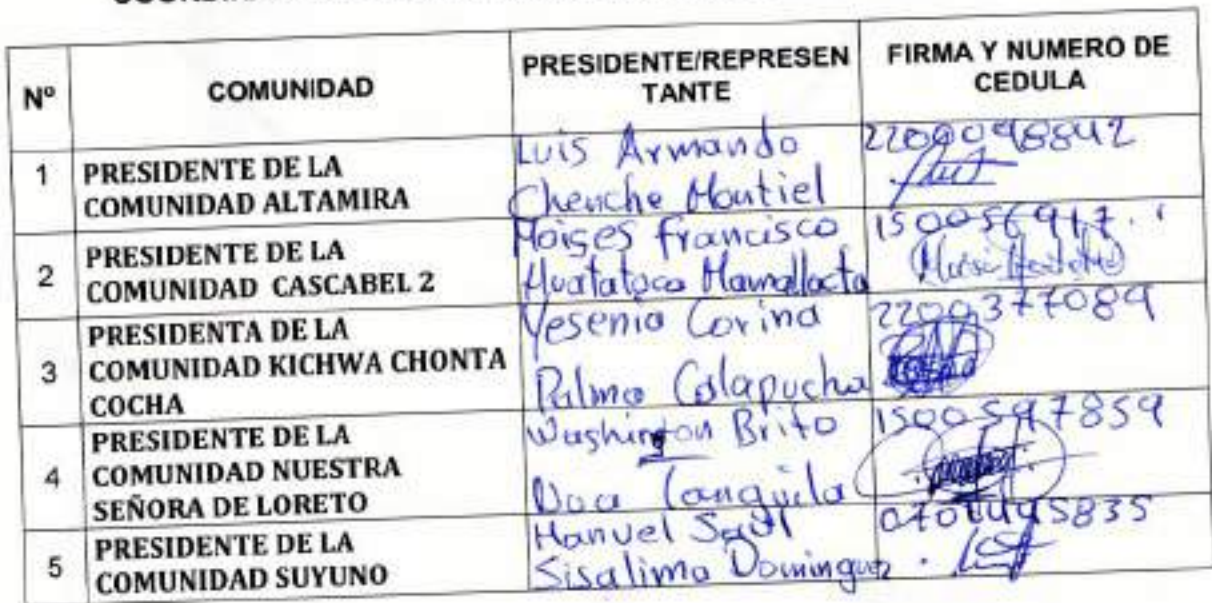 Nº COMUNIDAD PRESIDENTE/REPRESEN
TANTE FIRMA Y NUMERO DE
CEDULA
1 PRESIDENTE DE LA
COMUNIDAD ALTAMIRA
Luis Armando
Chenche Montiel
2200098842
2 PRESIDENTE DE LA
COMUNIDAD CASCABEL 2
Moises Francisco
Huatatoca Mamallacta
150056917
3 PRESIDENTA DE LA
COMUNIDAD KICHWA CHONTA
COCHA
Yesenia Corina
Palma Calapucha
2200377089
4 PRESIDENTE DE LA
COMUNIDAD NUESTRA
SEÑORA DE LORETO
Washington Brito
Noa Tanguila
1500597859
5 PRESIDENTE DE LA
COMUNIDAD SUYUNO
Manuel Saul
Sisalima Dominguez